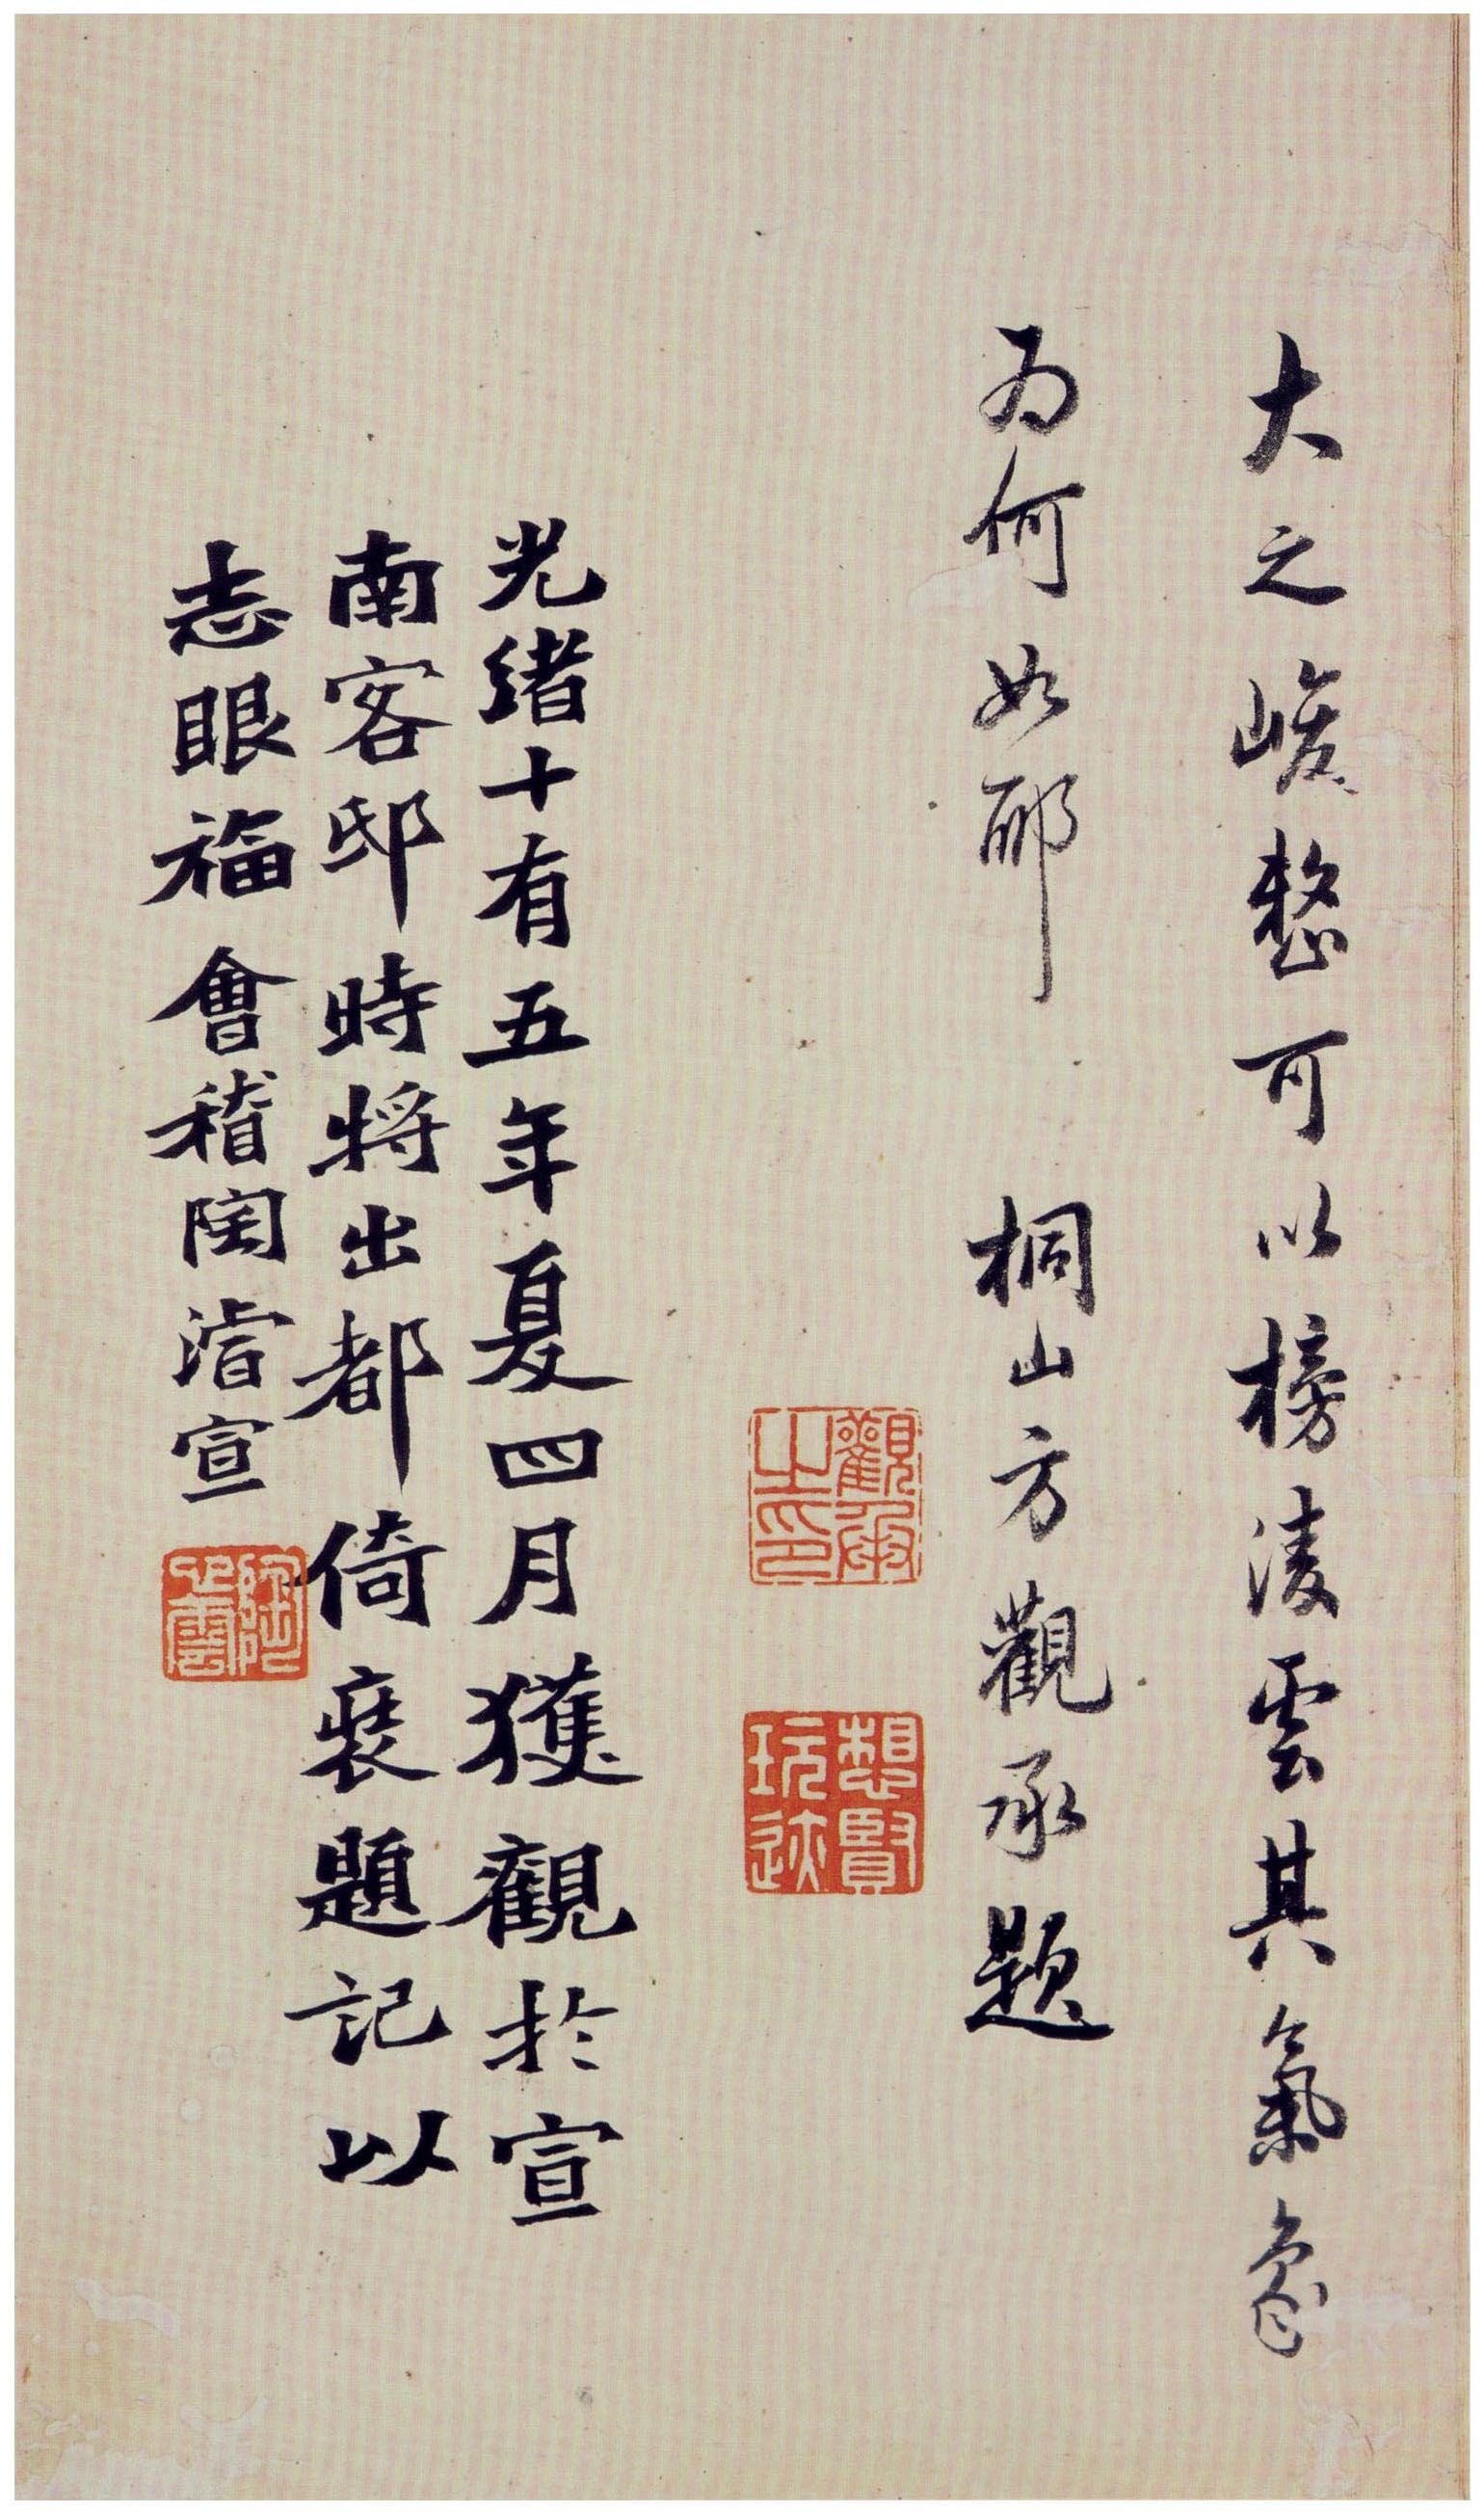 大之峻整可以榜淩雲其氣象
為何如耶 桐山方觀承題
觀承之印
想賢玩迹
光緒十有五年夏四月獲觀於宣
南客邸時將出都倚裝題記以
志眼福會稽陶濬宣
陶心雲